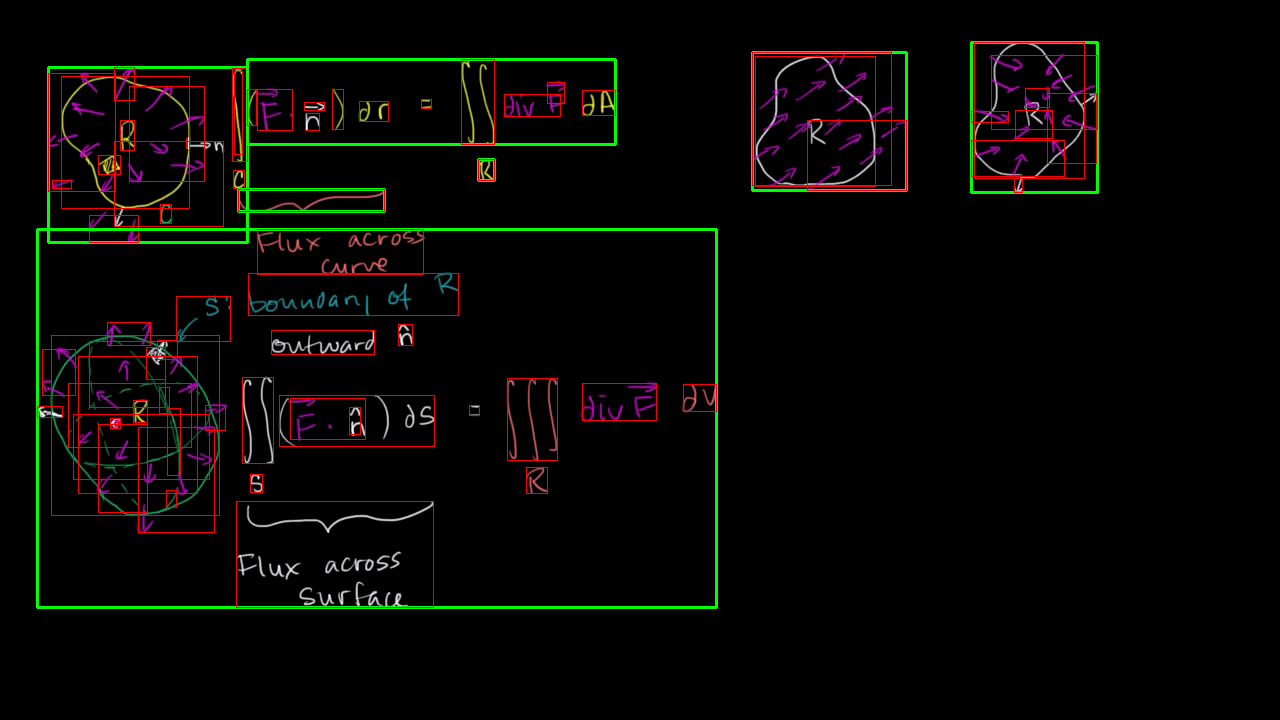 R
n
C
∮ (F⃗ · n⃗) dr = ∬ div F⃗ dA
C R
Flux across
curve
S: boundary of R
outward n̂
R
∬ (F⃗ · n̂) dS = ∭ div F⃗ dV
S R
Flux across
surface
R
R